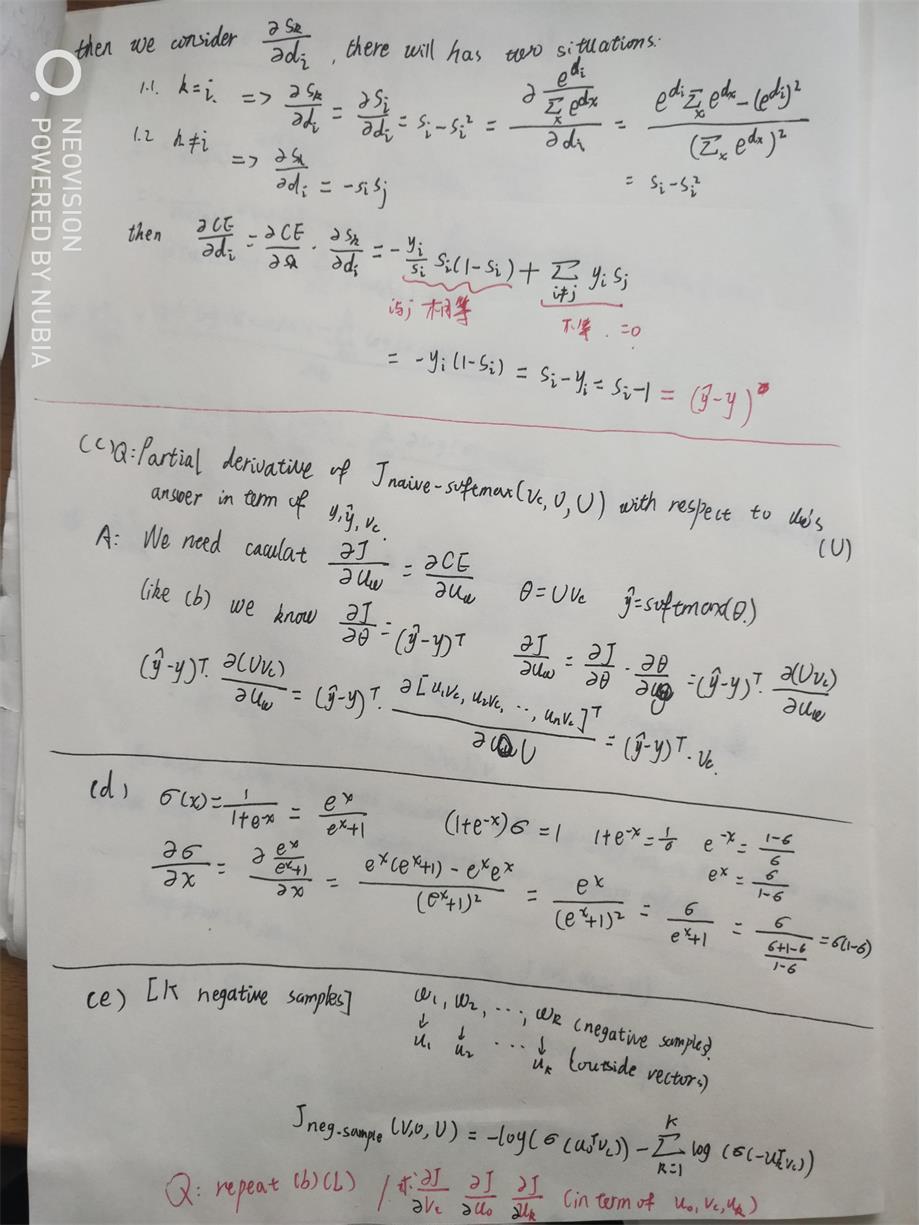 then we consider ∂Sk/∂di , there will has two situations:
1.1. k=i. => ∂Sk/∂di = ∂Si/∂di = Si-Si² = ∂ (e^di / Σx e^dx) / ∂di = (e^di Σx e^dx - (e^di)²) / (Σx e^dx)²
= Si-Si²
1.2 k≠i => ∂Sk/∂di = -SiSj
then ∂CE/∂di = ∂CE/∂Sk · ∂Sk/∂di = - yi/Si Si(1-Si) + Σi≠j yi Sj
i与j 相等 不等 . =0
= -yi(1-Si) = Si-yi = Si-1 = (ŷ-y)
(c)Q: Partial derivative of Jnaive-softmax(Vc, O, U) with respect to uw's
answer in term of y, ŷ, Vc. (U)
A: We need caculat ∂J/∂uw = ∂CE/∂uw θ=UVc ŷ=softmax(θ)
like (b) we know ∂J/∂θ = (ŷ-y)ᵀ ∂J/∂uw = ∂J/∂θ · ∂θ/∂u = (ŷ-y)ᵀ · ∂(UVc)/∂uw
(ŷ-y)ᵀ · ∂(UVc)/∂uw = (ŷ-y)ᵀ · ∂[u1Vc, u2Vc, ··, unVc]ᵀ / ∂U = (ŷ-y)ᵀ · Vc.
(d) σ(x) = 1/(1+e^-x) = e^x/(e^x+1) (1+e^-x)σ = 1 1+e^-x = 1/σ e^-x = (1-σ)/σ
e^x = σ/(1-σ)
∂σ/∂x = ∂ (e^x/(e^x+1)) / ∂x = (e^x(e^x+1) - e^x e^x)/(e^x+1)² = e^x/(e^x+1)² = σ/(e^x+1) = σ/((σ+1-σ)/(1-σ)) = σ(1-σ)
(e) [K negative samples] w1, w2, ···, wk (negative samples)
↓ ↓ ↓
u1 u2 ··· uk (outside vectors)
Jneg-sample(V,O,U) = -log(σ(uoᵀVc)) - Σ k=1 K log(σ(-ukᵀVc))
Q: repeat (b)(c) / 求 ∂J/∂Vc ∂J/∂uo ∂J/∂uk (in term of uo, Vc, uk)
NEOVISION
POWERED BY NUBIA